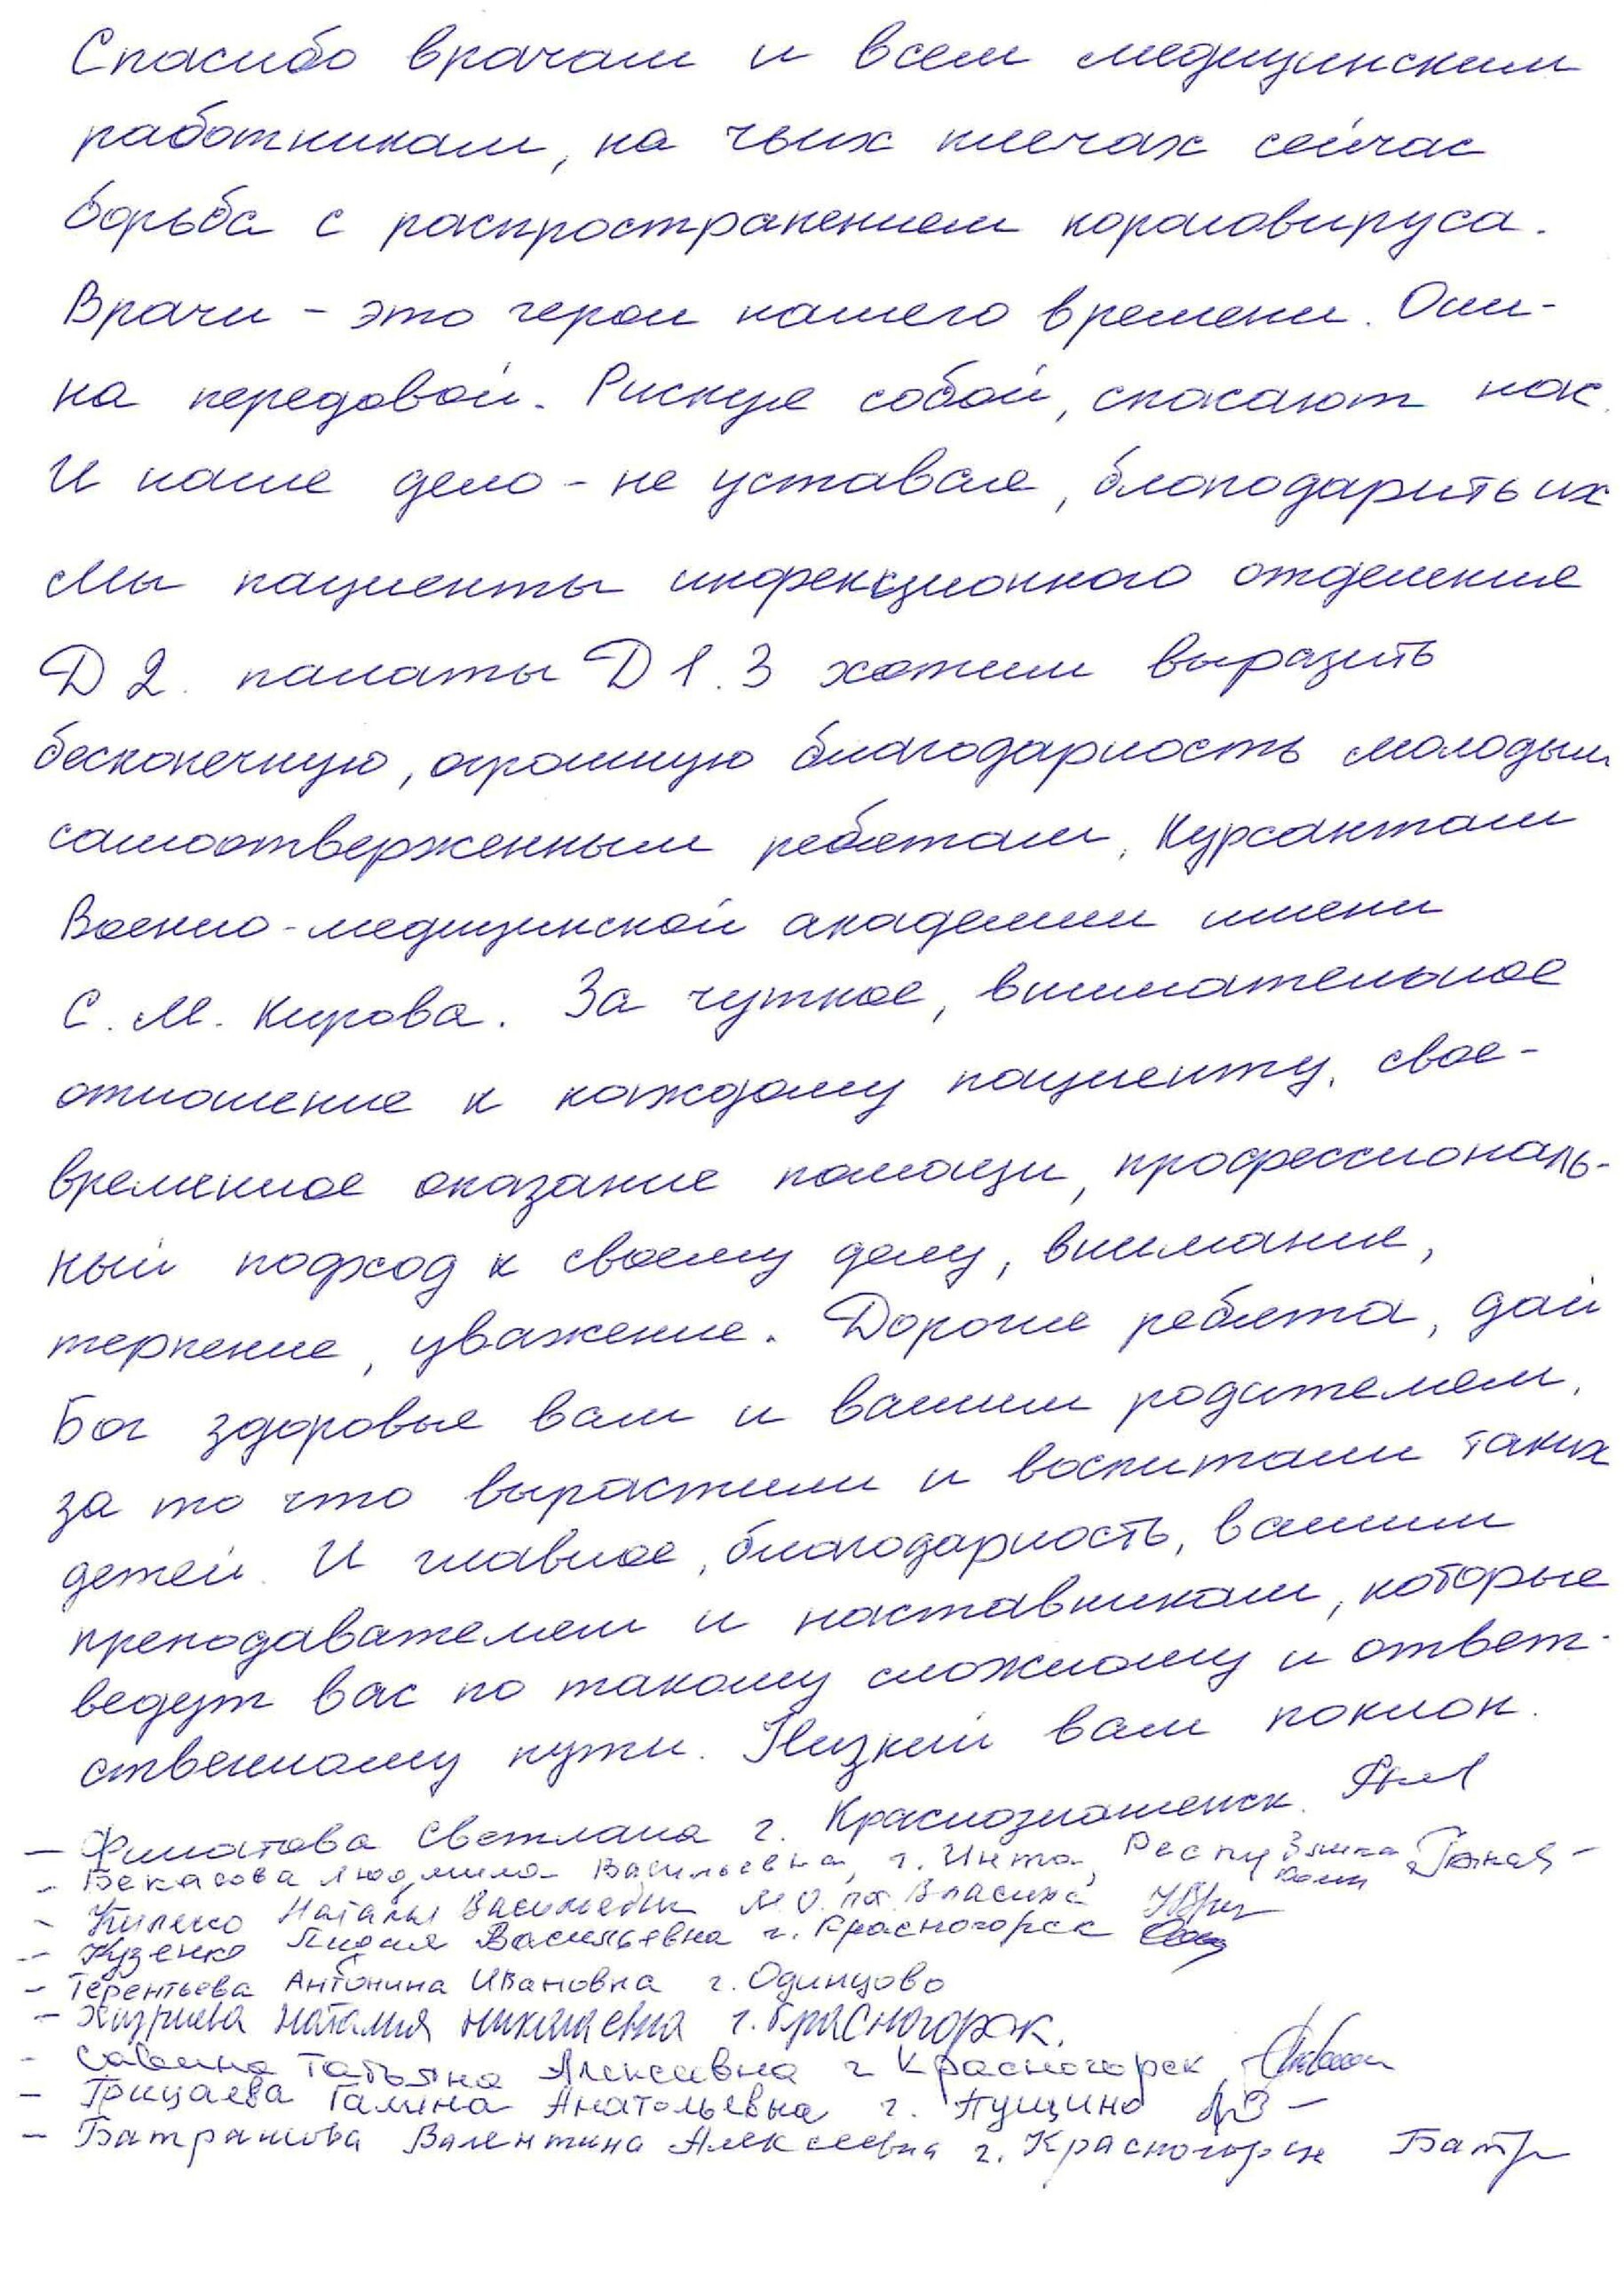 Спасибо врачам и всем медицинским
работникам, на чьих плечах сейчас
борьба с распространением короновируса.
Врачи - это герои нашего времени. Они -
на передовой. Рискуя собой, спасают нас.
И наше дело - не уставая, благодарить их
Мы пациенты инфекционного отделения
Д 2. палаты Д 1.3 хотим выразить
бесконечную, огромную благодарность молодым
самоотверженным ребятам, Курсантам
Военно-медицинской академии имени
С. М. Кирова. За чуткое, внимательное
отношение к каждому пациенту, свое-
временное оказание помощи, профессиональ-
ный подход к своему делу, внимание,
терпение, уважение. Дорогие ребята, дай
Бог здоровье вам и вашим родителям,
за то что вырастили и воспитали таких
детей. И главное, благодарность, вашим
преподавателям и наставникам, которые
ведут вас по такому сложному и ответ-
ственному пути. Низкий вам поклон.
- Филатова Светлана г. Краснознаменск.
- Бекасова Людмила Васильевна, г. Инта, Республика Коми
- Наталья Васильевна М.О. пос. Власиха
- Кузенко Лидия Васильевна г. Красногорск
- Терентьева Антонина Ивановна г. Одинцово
- Хизриева Наталия Николаевна г. Красногорск.
- Савина Татьяна Алексеевна г Красногорск
- Грицаева Галина Анатольевна г. Пущино
- Батрашова Валентина Алексеевна г. Красногорск Батр